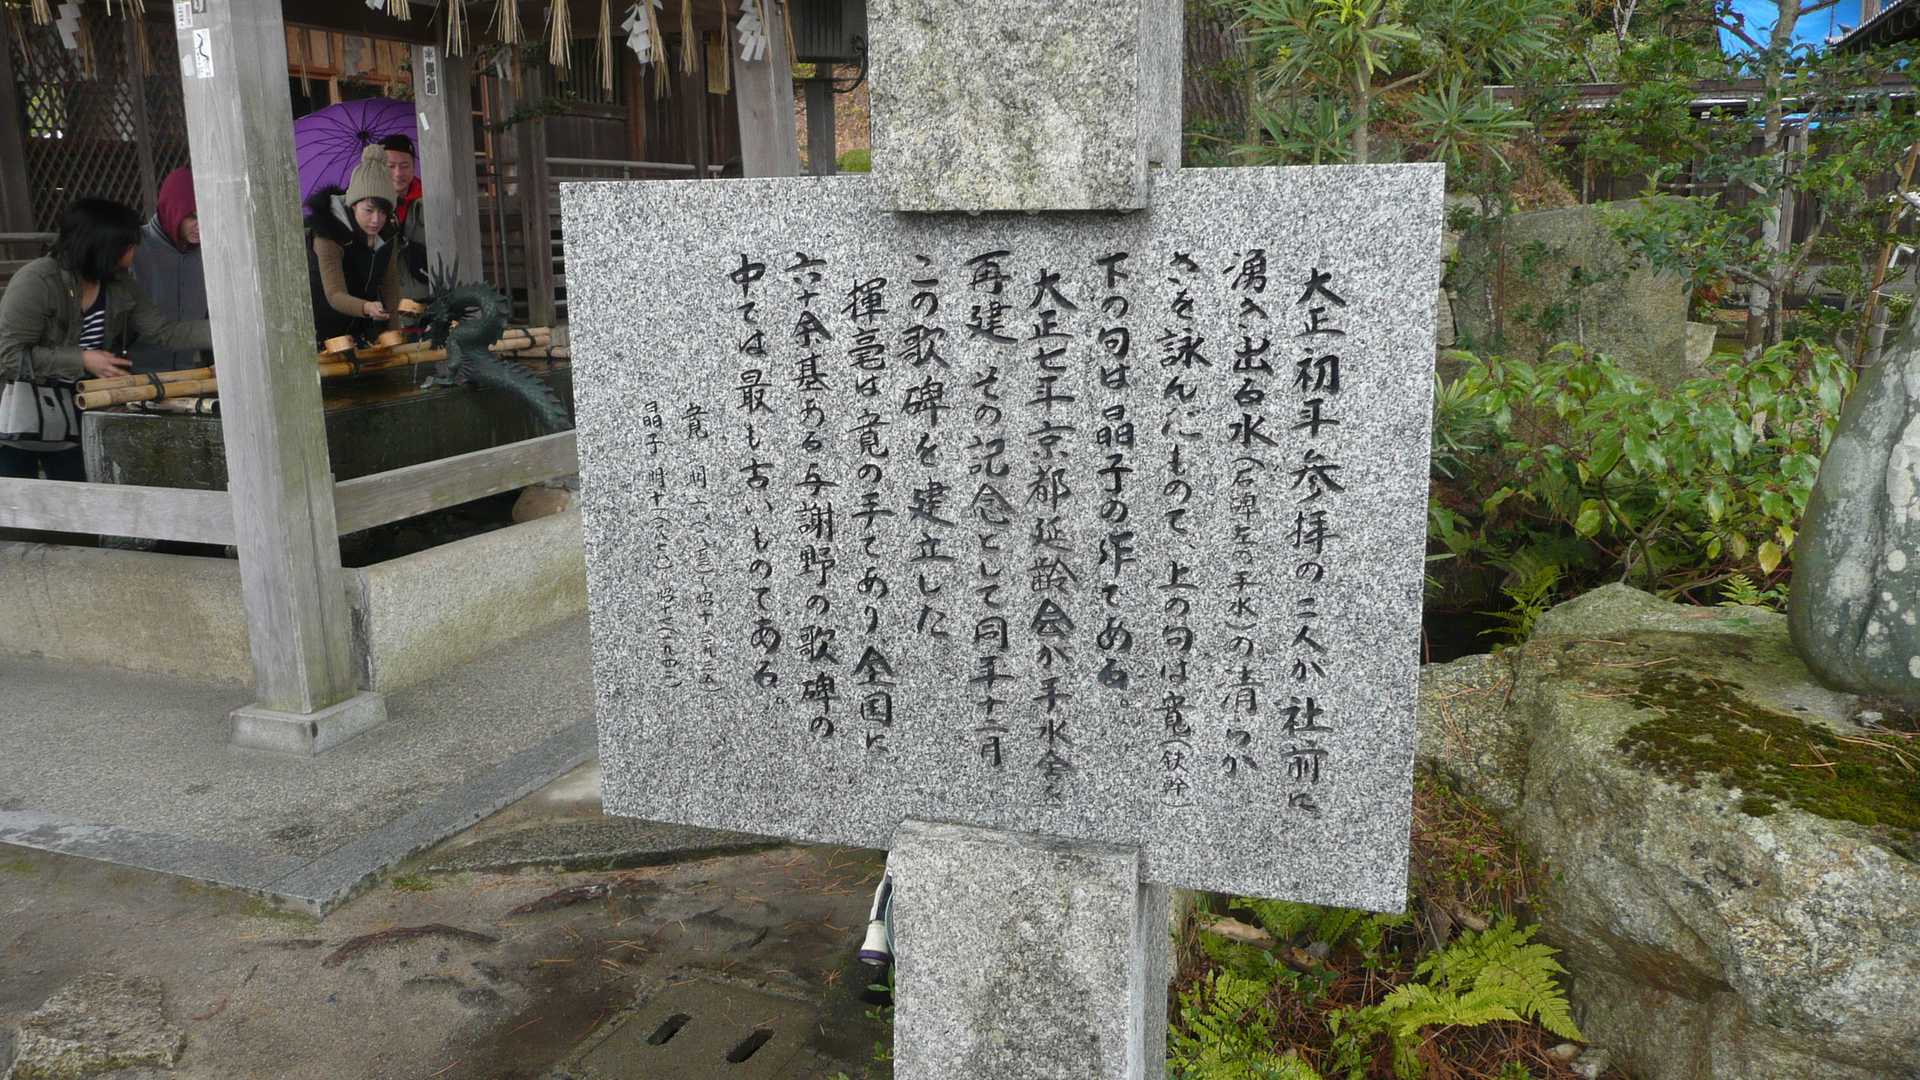 大正初年参拝の二人が社前に
湧き出る水（石碑左の手水）の清らか
さを詠んだもので、上の句は寛（鉄幹）
下の句は晶子の作である。
大正七年京都延齢会が手水舎を
再建、その記念として同年十二月
この歌碑を建立した
揮毫は寛の手であり、全国に
六十余基ある与謝野の歌碑の
中では最も古いものである。
寛 明六（一八七三）〜昭十（一九三五）
晶子 明十一（一八七八）〜昭十七（一九四二）